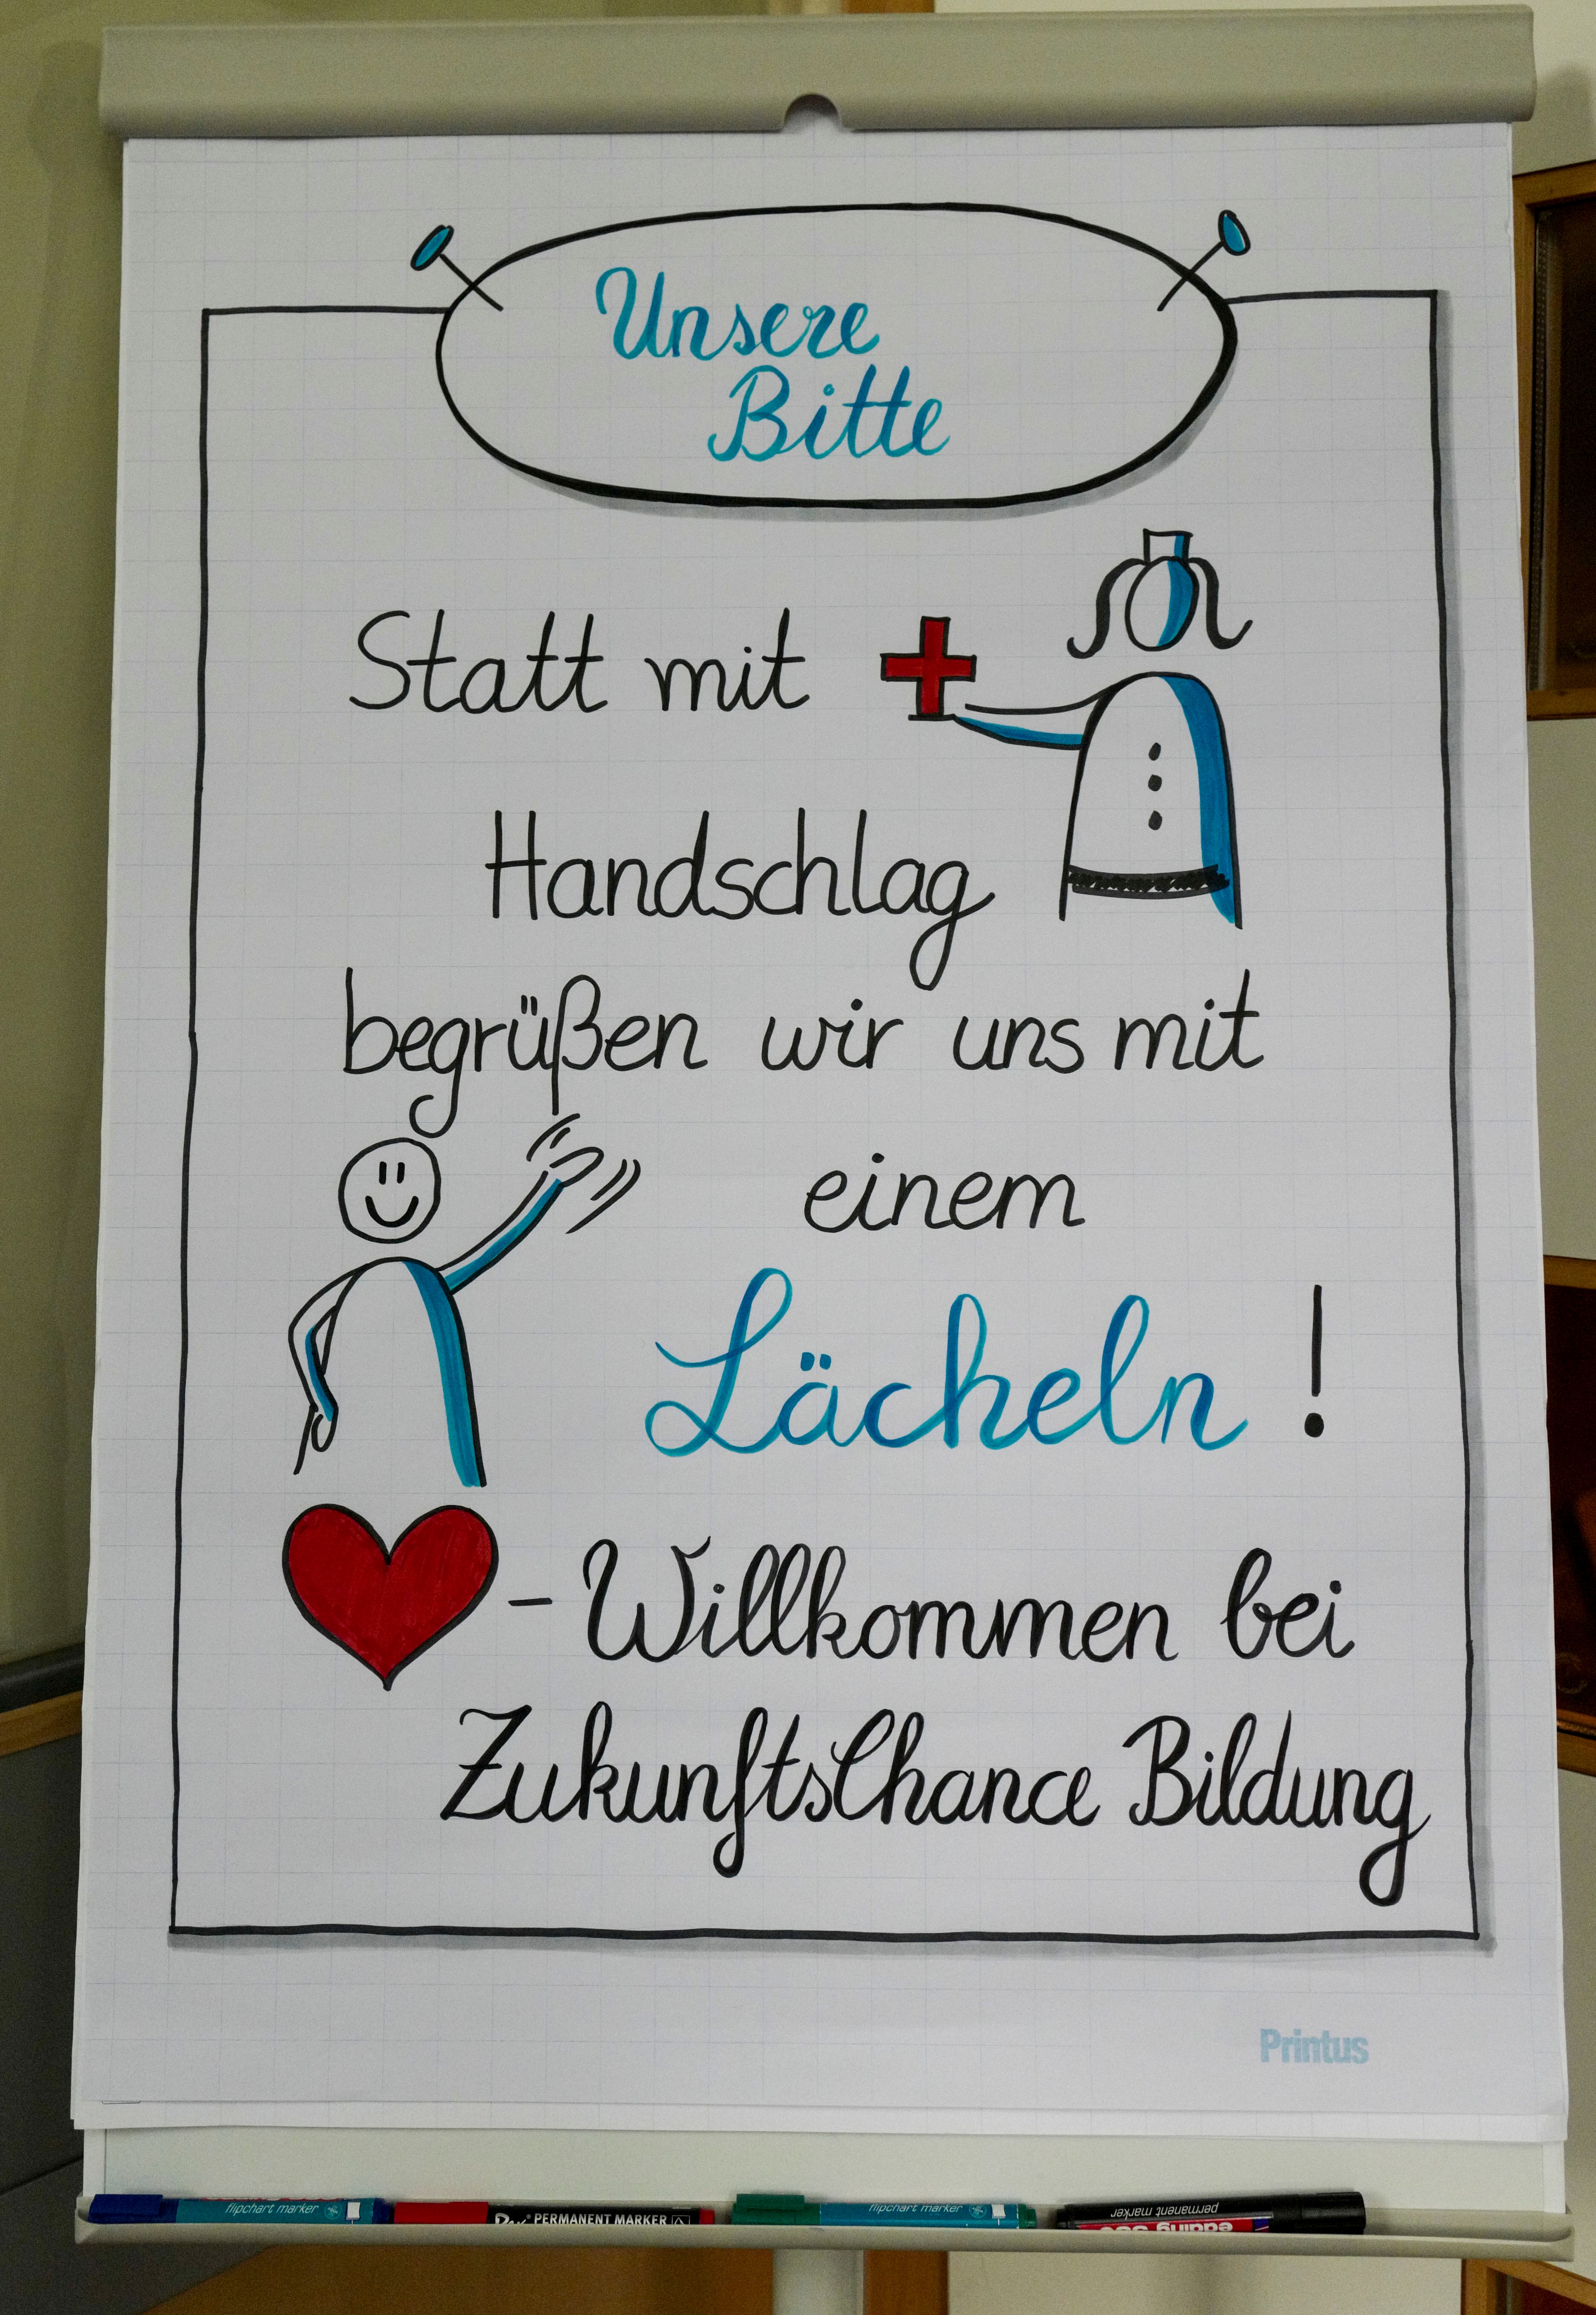 Unsere
Bitte
Statt mit
Handschlag
begrüßen wir uns mit
einem
Lächeln!
-Willkommen bei
ZukunftsChance Bildung
Printus
flipchart marker
PERMANENT MARKER
flipchart marker
permanent marker
edding